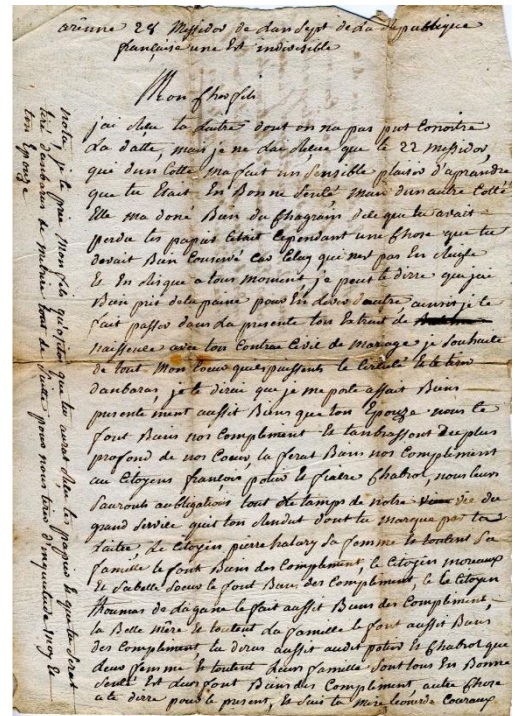 arênne 28 Messidor de Lan sept de La République
française une Et indivisible
Mon Cher fils
j'ai Reçu ta Lettre dont on na pas put Conoitre
La datte, mais je ne Lai Reçue que le 22 Messidor,
qui dun Cotte, ma fait un Sensible plaisir d'aprandre
que tu Etait En Bonne Senté Mais dun autre Cotté
Elle ma done Bien du Chagrain de ce que tu avait
perdu tes papié Cétait Cependant une Chose que tu
devait Bien Conservé Car Celuy qui nest pas En Reigle
Et En Risque a tous moment, je peut te dirre que jai
Bien pris de la paine pour En avoir d'autre aussis je te
fait passer dans La presente ton Extrait de
naissence avec ton Contrac Civil de Mariage je souhaite
de tout Mon Coeur que puissents le Et te tirer
danbaras, je te dirai que je me porte assait Biens
presente ment aussit Biens que ton Epouze nous te
font Biens nos Compliment Et tanbrassont du plus
profond de nos Coeur, tu ferat Bien nos Compliment
au Citoyens francois potier Et Chabrol, nous leurs
Saurons aubligations tout Le tamps de notre vie du
grand Service quit ton Rendut dont tu marque par ta
Laitre, Le Citoyen pierre halary Sa femme Et toutent Sa
famille te font Biens des Compliment, le Citoyen moreaux
Et Sabelle Soeur te font Biens des Compliment, Le Citoyen
thoumas de Lagane te fait aussit Biens des Compliment,
La Belle Mère Et toutent La famille te font aussit Biens
des Compliment, tu diras aussit audit potier Et Chabrol que
deux femme Et toutent Leurs famille Sont tous En Bonne
Senté Et Leurs font Biens des Compliment, autre Chose
a te dirre pour le present, Et Suit ta Mère Léonarde Couraux
nota je te prie Mon fils qu'ausitot que tu aurat Reçu tes papier Et que tu Serat
tiré danbaras de mécrire tout de Suitte pour nous tirer d'inquietude Moy Et
ton Epouze